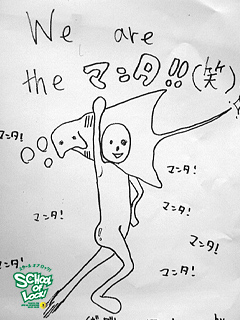 We are
the マンタ!!(笑)
マンタ!
マンタ!
マンタ!
マンタ!
マンタ!
マンタ!
SCHOOL
OF LOCK!
by